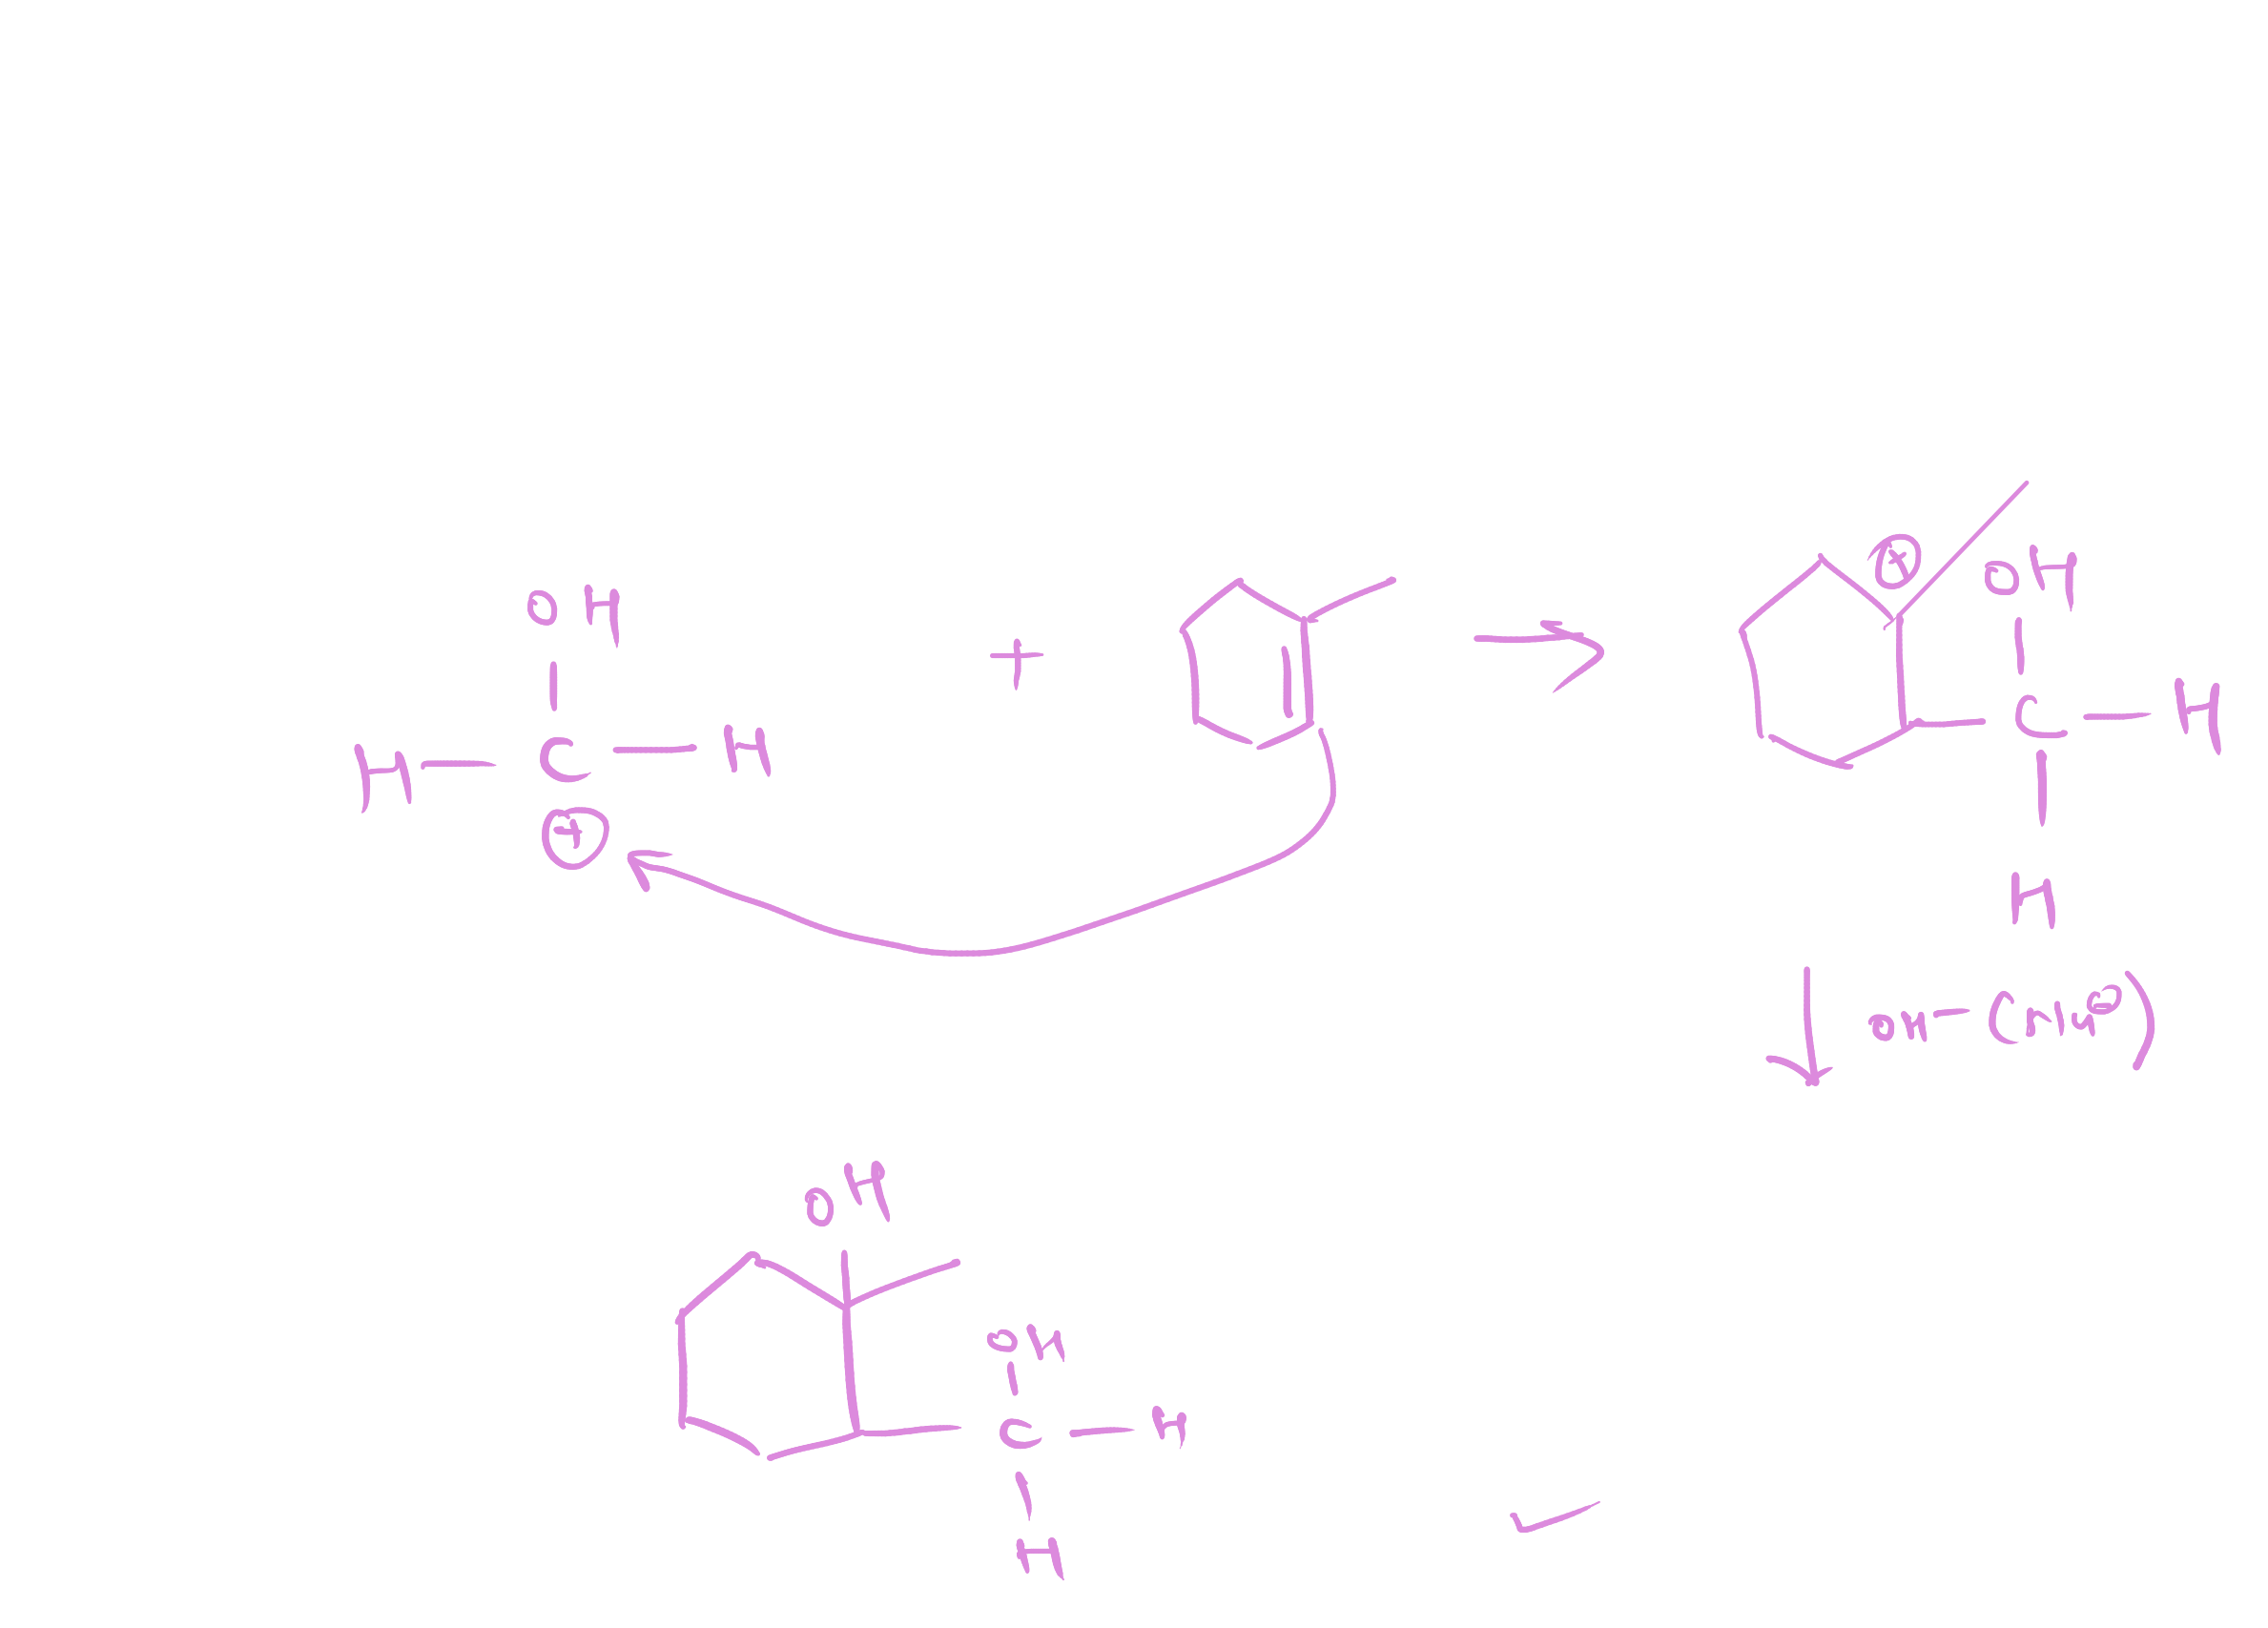 OH
H — C — H
⊕
+
⊕
OH
C — H
H
OH
OH
C — H
H